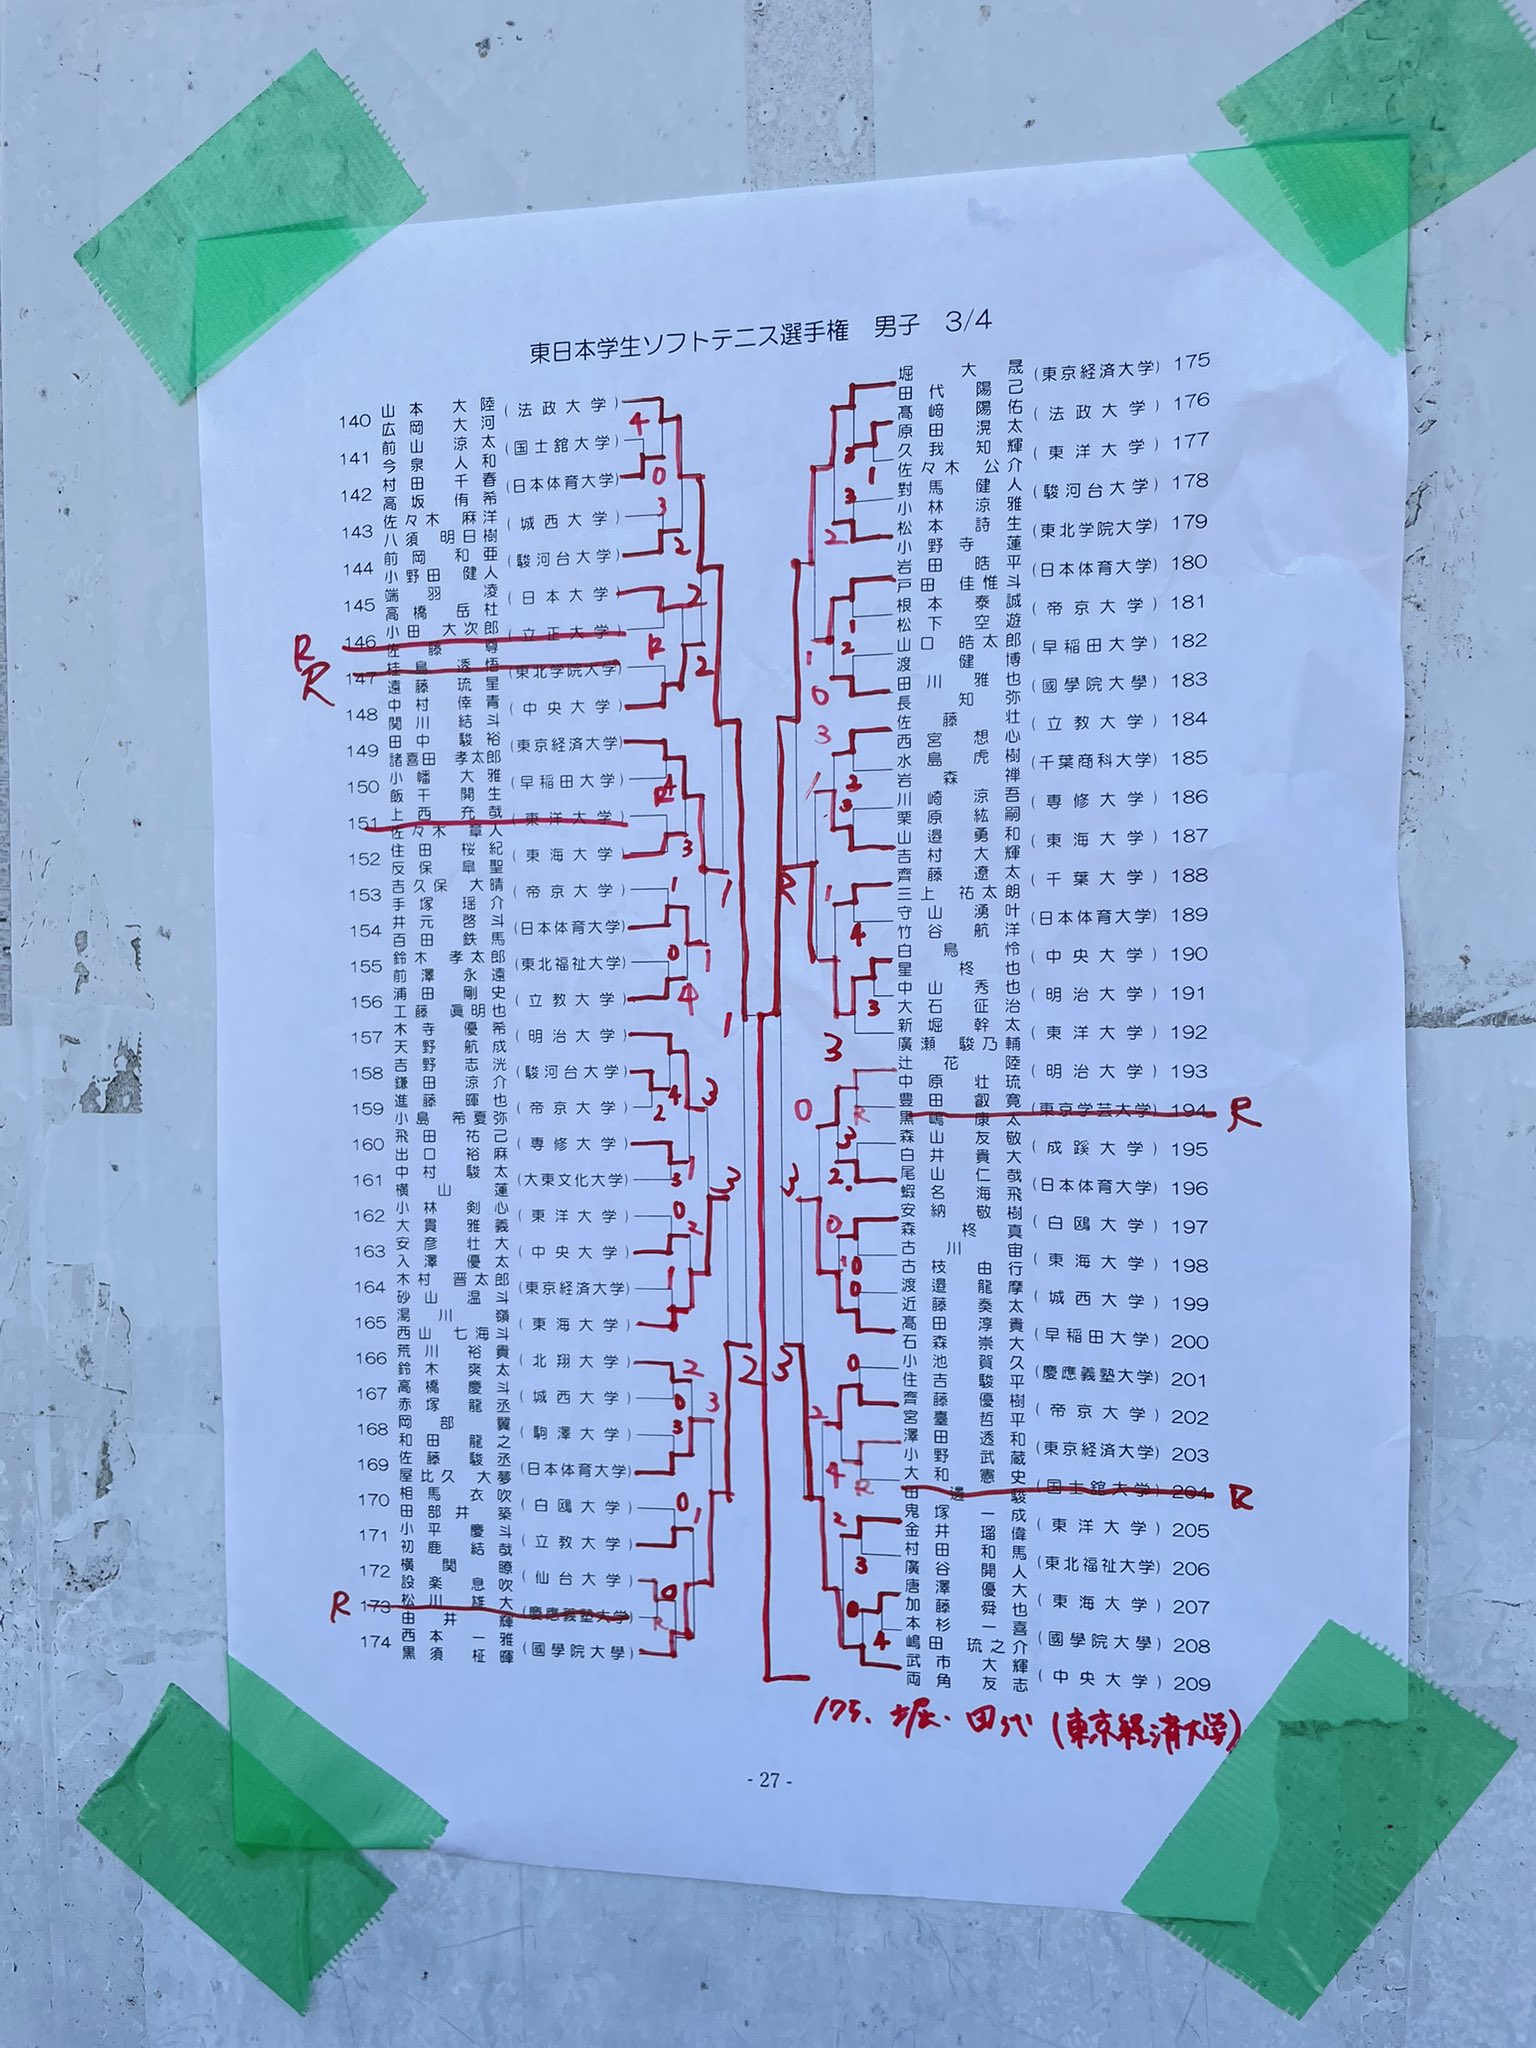 東日本学生ソフトテニス選手権 男子 3/4
140 山本 大陸 (法政大学)
広岡 大河
141 前山 涼太 (国士舘大学)
今泉 人和
142 村田 千春 (日本体育大学)
高坂 侑希
143 佐々木 麻洋 (城西大学)
八須 明日樹
144 前岡 和亜 (駿河台大学)
小野田 健人
145 端羽 凌 (日本大学)
高橋 岳杜
R 146 小田 大次郎 (立正大学)
佐藤 尊
R 147 桂島 透悟 (東北学院大学)
遠藤 琉星
148 中村 倖青 (中央大学)
関川 結斗
149 田中 駿裕 (東京経済大学)
諸喜田 孝太郎
150 小幡 大雅 (早稲田大学)
飯干 開生
151 上西 充哉 (東洋大学)
佐々木 章人
152 住田 桜紀 (東海大学)
反保 皐聖
153 吉久保 大晴 (帝京大学)
手塚 瑶介
154 井元 啓斗 (日本体育大学)
百田 鉄馬
155 鈴木 孝太郎 (東北福祉大学)
前澤 永遠
156 浦田 剛史 (立教大学)
工藤 眞明也
157 木寺 優希 (明治大学)
天野 航成
158 吉野 志洸 (駿河台大学)
鎌田 涼介
159 進藤 暉也 (帝京大学)
小島 希夏弥
160 飛田 祐己 (専修大学)
出口 裕麻
161 中村 駿太 (大東文化大学)
横山 蓮
162 小林 剣心 (東洋大学)
大貫 雅義
163 安彦 壮大 (中央大学)
入澤 優太
164 木村 晋太郎 (東京経済大学)
砂山 温斗
165 湯川 嶺 (東海大学)
西山 七海斗
166 荒川 裕貴 (北翔大学)
鈴木 爽太
167 高橋 慶斗 (城西大学)
赤塚 龍丞
168 岡部 翼 (駒澤大学)
和田 龍之
169 佐藤 駿丞 (日本体育大学)
屋比久 大夢
170 相馬 衣吹 (白鴎大学)
田部井 築
171 小平 慶斗 (立教大学)
初鹿 結哉
172 横関 瞭 (仙台大学)
設楽 息吹
R 173 松川 雄大 (慶應義塾大学)
由井 輝
174 西本 一雅 (國學院大學)
黒須 柾暉
堀 大晟 (東京経済大学) 175
田代 陽己
髙﨑 陽佑 (法政大学) 176
原田 滉太
久我 知輝 (東洋大学) 177
佐々木 公介
對馬 健人 (駿河台大学) 178
小林 涼雅
松本 詩生 (東北学院大学) 179
小野寺 蓮
岩田 皓平 (日本体育大学) 180
戸田 佳惟斗
根本 泰誠 (帝京大学) 181
松下 空遊
山口 皓太郎 (早稲田大学) 182
渡 健博
田川 雅也 (國學院大學) 183
長 知弥
佐藤 壮 (立教大学) 184
西宮 想心
水島 虎樹 (千葉商科大学) 185
岩森 禅
川崎 涼吾 (専修大学) 186
栗原 紘嗣
山邉 勇和 (東海大学) 187
吉村 大輝
齊藤 遼太 (千葉大学) 188
三上 祐太朗
守山 湧叶 (日本体育大学) 189
竹谷 航洋
白鳥 怜 (中央大学) 190
星 柊也
中山 秀也 (明治大学) 191
大石 征治
新堀 幹太 (東洋大学) 192
廣瀬 駿乃輔
辻花 陸 (明治大学) 193
中原 壮琉
豊田 叡寛 (東京学芸大学) 194 R
黒嶋 康太
森山 友敬 (成蹊大学) 195
白井 貴大
尾山 仁哉 (日本体育大学) 196
蝦名 海飛
安納 敬樹 (白鴎大学) 197
森 柊真
古川 宙 (東海大学) 198
古枝 由行
渡邉 龍摩 (城西大学) 199
近藤 奏太
髙田 淳貴 (早稲田大学) 200
石森 崇大
小池 賀久 (慶應義塾大学) 201
住吉 駿平
齊藤 優樹 (帝京大学) 202
宮臺 哲平
澤田 透和 (東京経済大学) 203
小野 武蔵
大和 憲史 (国士舘大学) 204 R
田邊 駿
鬼塚 一成 (東洋大学) 205
金井 瑠偉
村田 和馬 (東北福祉大学) 206
廣谷 開人
唐澤 優大 (東海大学) 207
加藤 舜也
本杉 一喜 (國學院大學) 208
嶋田 琉之介
武市 大輝 (中央大学) 209
両角 友志
175. 堀・田代 (東京経済大学)
- 27 -